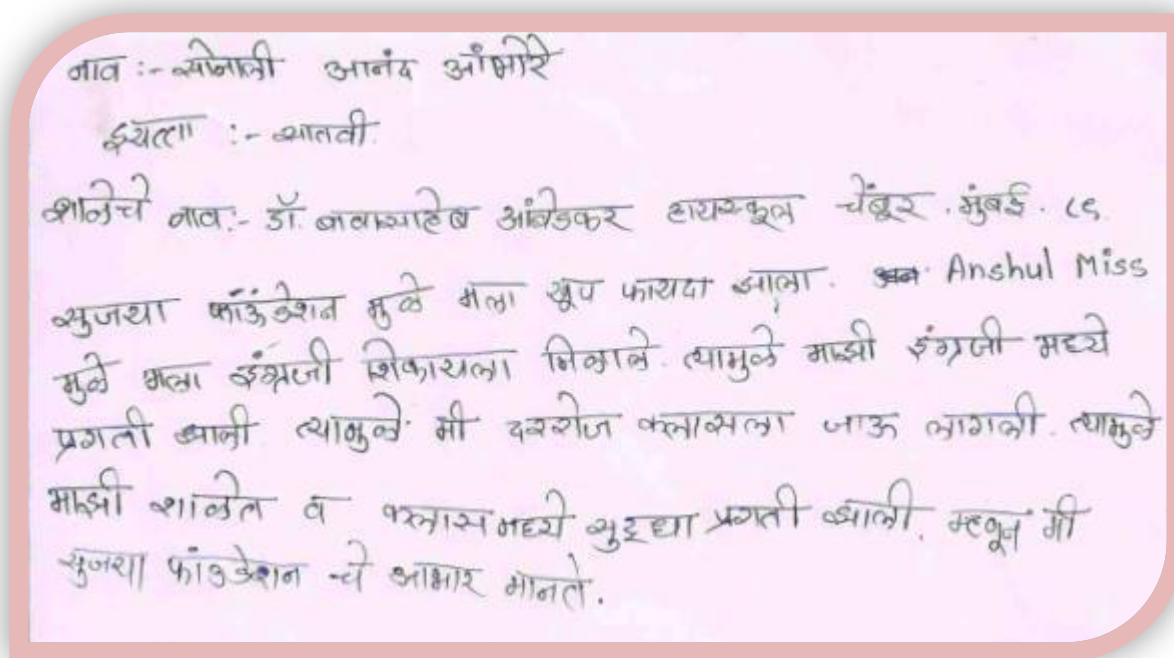 नाव :- सोनाली आनंद आंभोरे
इयत्ता :- सातवी.
शाळेचे नाव:- डॉ. बाबासाहेब आंबेडकर हायस्कूल चेंबूर. मुंबई. ८९
सुजया फाऊंडेशन मुळे मला खूप फायदा झाला. Anshul Miss
मुळे मला इंग्रजी शिकायला मिळाले. त्यामुळे माझी इंग्रजी मध्ये
प्रगती झाली. त्यामुळे मी दररोज क्लासला जाऊ लागली. त्यामुळे
माझी शाळेत व क्लासमध्ये सुद्धा प्रगती झाली. म्हणून मी
सुजया फांउडेशन चे आभार मानते.